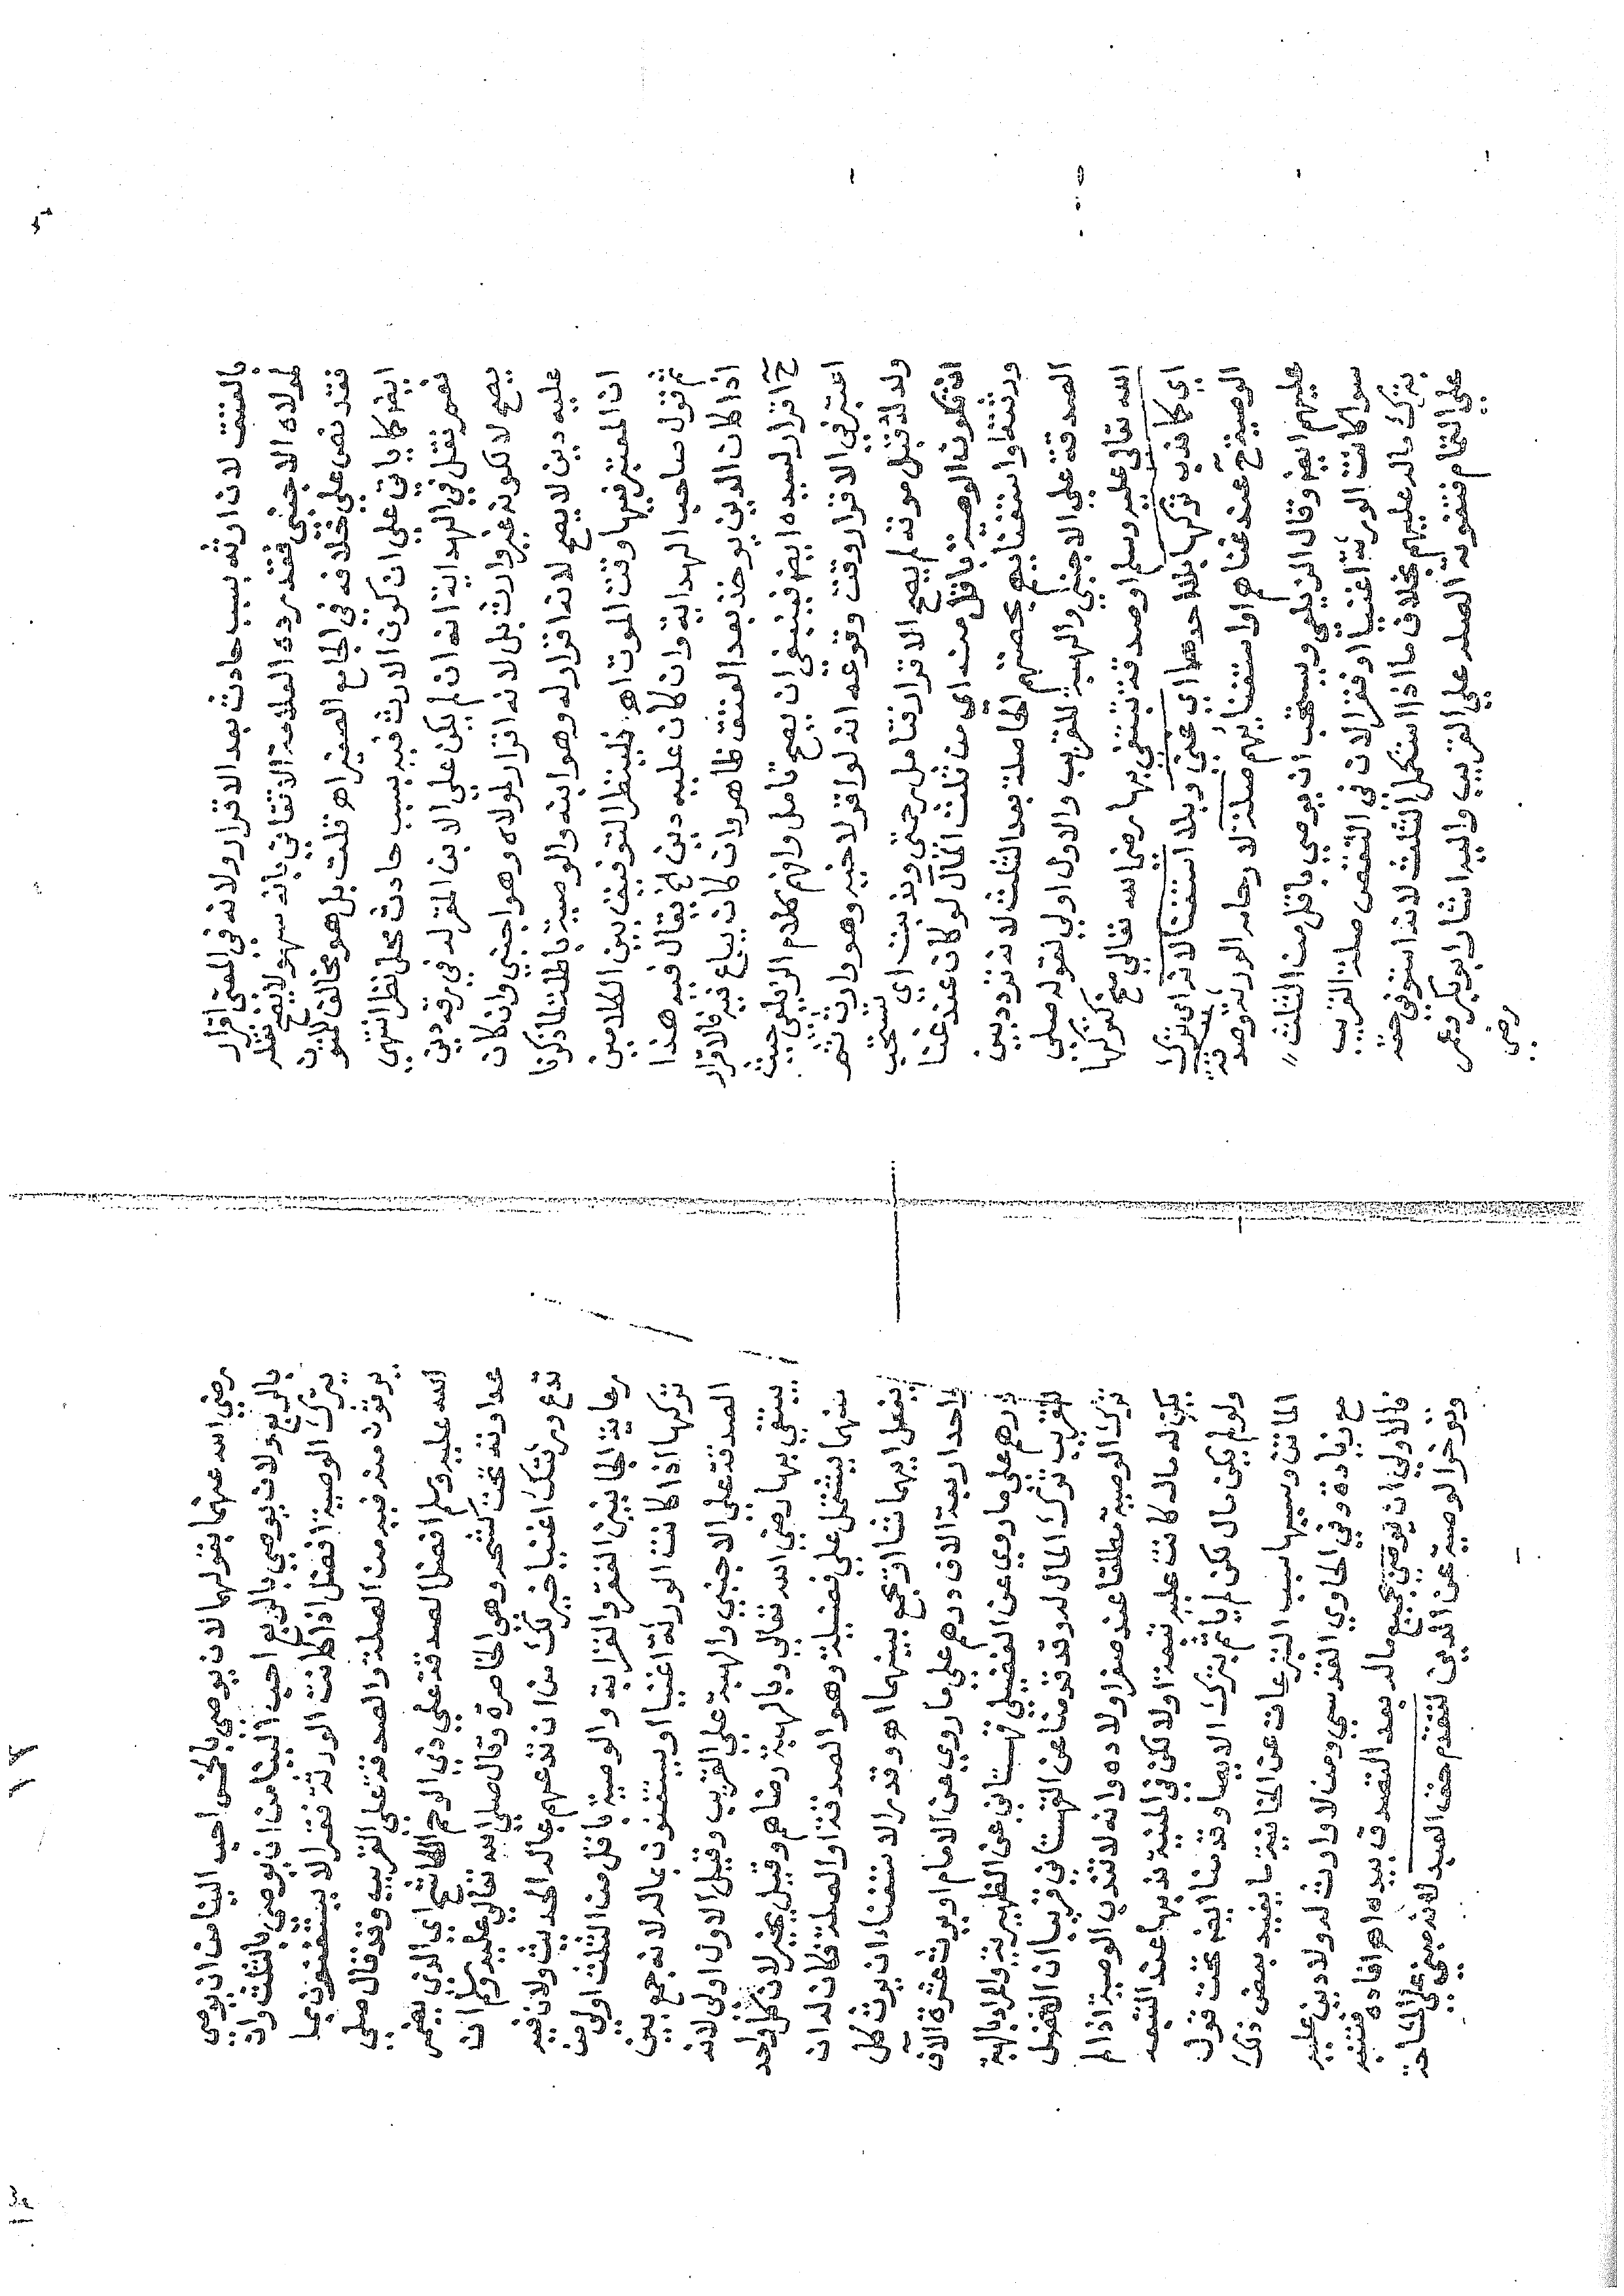 بالعتق لان ارثه بسبب حادث بعد الاقرار ولانه في المعنى اقرار
لمولاه الاجنبي فقد رده العلامة الاتقاني بانه سهو لا يصح نقله
فقد نص على خلافه في الجامع الصغير اه قلت بل هو مخالف للمتون
ايضا كما ياتي على ان كون الارث فيه بسبب حادث محل نظر انتهى
نعم نقل في الهداية انه ان لم يكن على الابن المقر له في رقه دين
يصح لا لكونه غير وارث بل لانه اقرار لمولاه وهو اجنبي وان كان
عليه دين لا يصح لانه اقرار له وهو ابنه والوصية باطلة لما ذكرنا
ان المعتبر فيها وقت الموت اه فلينظر التوفيق بين الكلامين
ثم قول صاحب الهداية وان كان عليه دين الخ يقال فيه هذا
اذا كان الدين يوخذ بعد العتق ظاهر وان كان يباع فيه فالاقرار
ح اقرار لسيده ايضا فينبغي ان يصح تامل وافهم كلام الزيلعي حيث
اعتبر في الاقرار وقت وقوعه انه لو اقر لاخيه وهو وارث ثم
ولد له قبل موته لم يصح الاقرار فتامل رحمتي وندبت اي تستحب
ان تكون الوصية باقل منه اي من ثلث المال لو كان عند غنا
ورثته او استغنايهم بحصتهم الحاصلة بعد الثلث لانه تردد بين
الصدقة على الاجنبي والهبة للقريب والاول اولى لقوله صلى
الله تعالى عليه وسلم او صدقة تبتغي بها رضا الله تعالى منح كتركها
اي كما ندب تركها بلا احدهما اي غنى وبلا استغنا لانه اي ترك
الوصية ح عند غناهم او استغنايهم صلة لارحامه الورثة وصدقة
عليهم ايضا وقال الزيلعي ويستحب ان يوصي باقل من الثلث
سوا كانت الورثة اغنيا او فقرا لان في التنقيص صلة القريب
بترك ماله عليهم بخلاف ما اذا استكمل الثلث لانه استوفى حقه
على التمام فتفوته الصلة على القريب واليه اشار ابو بكر وعمر
رضي
١٢
رضي الله عنهما بقولهما لان يوصي بالخمس احب الينا من ان يوصي
بالربع ولان يوصي بالربع احب الينا من ان يوصي بالثلث وان
يترك الوصية افضل اذا كانت الورثة فقرا لا يستغنون بما
يرثون منه فيه من الصلة والصدقة على القريب وقد قال صلى
الله عليه وسلم افضل الصدقة على ذي الرحم الكاشح اي الذي يضمر
عداوته تحت كشحه وهو الخاصرة وقال صلى الله تعالى عليه وسلم ان
تدع ورثتك اغنيا خير لك من ان تدعهم عالة الحديث ولان فيه
رعاية الجانبين الفقر والقرابة والوصية باقل من الثلث اولى من
تركها اذا كانت الورثة اغنيا او يستغنون بماله لانه جمع بين
الصدقة على الاجنبي والهبة على القريب وقيل الاول اولى لانه
يبتغي بها رضي الله تعالى وبالهبة رضاهم وقيل يخير لان كل واحد
منهما يشتمل على فضيلة وهو الصدقة او الصلة فكان له ان
يفعل ايهما شا او يجمع بينهما اه وقدر الاستغناء ان يرث كل
واحد اربعة الاف درهم على ما روي عن الامام او يرث عشرة الاف
درهم على ما روي عن الفضيلي قهستاني عن الظهيرية والمراد بالهبة
للقريب ترك المال له وقد قدمنا عن القهستاني قريبا ان الافضل
ترك الوصية مطلقا عند صغر اولاده وانه لا تندب الوصية اذا لم
يكن له مال كانت عليه تبعة او لا لكن في المنية ندبها عند التبعه
ولو لم يكن مال لكن لم ياثم بترك الايصا وقدمنا ايضا تحت قول
الماتن وسببها سبب التبرعات عن الخانية ما يفيد بعض ذلك
مع زيادة وفي الحاوي القدسي ومن لا وارث له ولا دين عليه
فالاولى ان يوصي بجميع ماله بعد التصدق بيده اه افاده فتنبه
وتوخر الوصية عن الدين لتقدم حق العبد لانه مبني على المشاحة